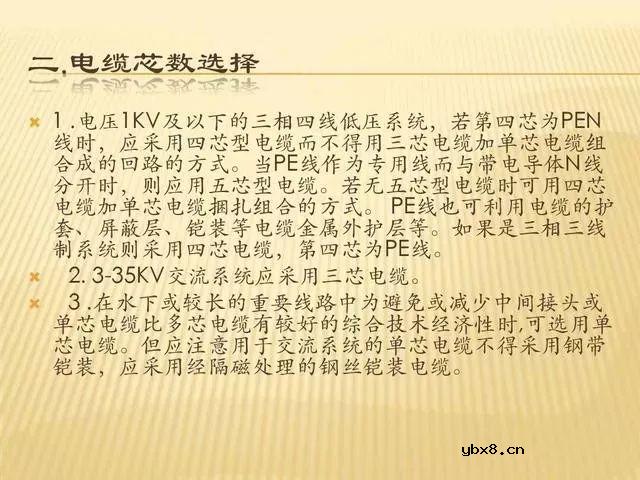 二.电缆芯数选择
1.电压1KV及以下的三相四线低压系统，若第四芯为PEN
线时，应采用四芯型电缆而不得用三芯电缆加单芯电缆组
合成的回路的方式。当PE线作为专用线而与带电导体N线
分开时，则应用五芯型电缆。若无五芯型电缆时可用四芯
电缆加单芯电缆捆扎组合的方式。 PE线也可利用电缆的护
套、屏蔽层、铠装等电缆金属外护层等。如果是三相三线
制系统则采用四芯电缆，第四芯为PE线。
2. 3-35KV交流系统应采用三芯电缆。
3.在水下或较长的重要线路中为避免或减少中间接头或
单芯电缆比多芯电缆有较好的综合技术经济性时,可选用单
芯电缆。但应注意用于交流系统的单芯电缆不得采用钢带
铠装，应采用经隔磁处理的钢丝铠装电缆。
ybx8.cn